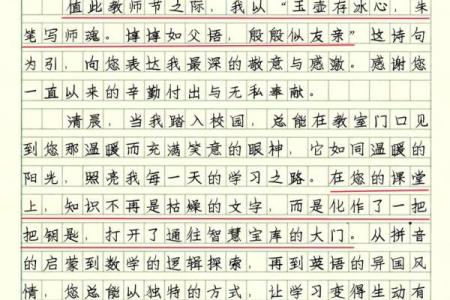 值此教师节之际，我以“玉壶存冰心，朱
笔写师魂。谆谆如父语，殷殷似友亲”这诗句
为引，向您表达我最深的敬意与感激。感谢您
一直以来的辛勤付出与无私奉献。
清晨，当我踏入校园，总能在教室门口见
到您那温暖而充满笑意的眼神，它如同温暖的
阳光，照亮我每一天的学习之路。在您的课堂
上，知识不再是枯燥的文字，而是化作了一把
把钥匙，打开了通往智慧宝库的大门。从拼音
的启蒙到数学的逻辑探索，再到英语的异国风
情，您总能以独特的方式，让学习变得生动有